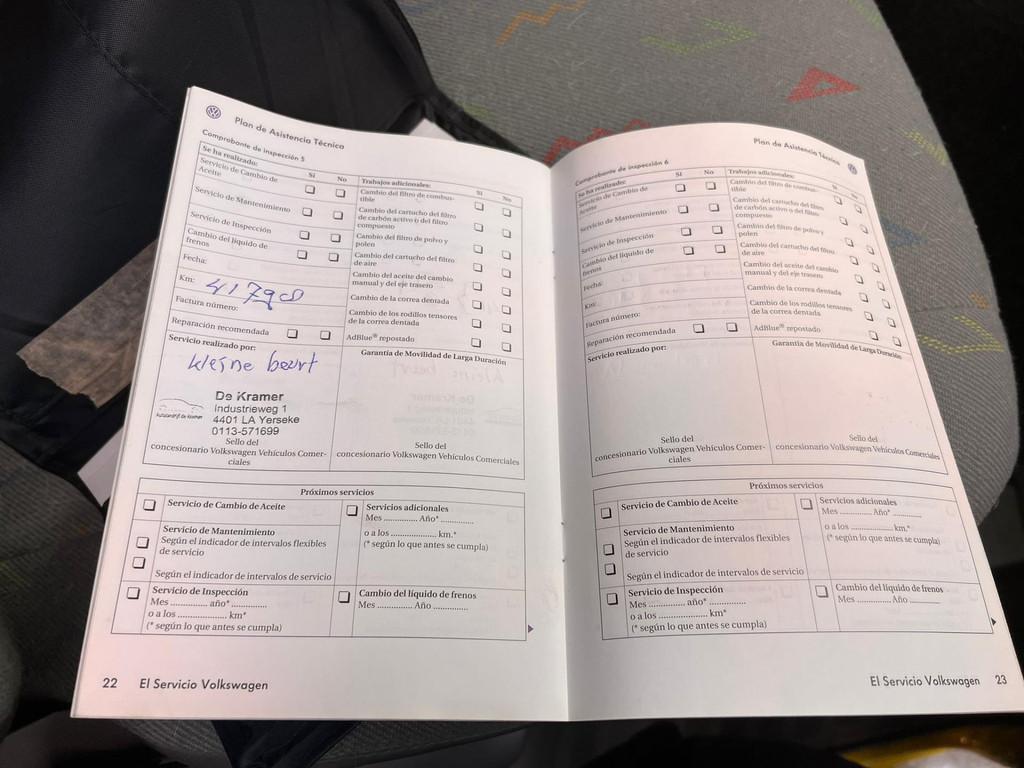 Plan de Asistencia Técnica
Comprobante de inspección 5
Se ha realizado: Sí No
Servicio de Cambio de
Aceite
Servicio de Mantenimiento
Servicio de Inspección
Cambio del líquido de
frenos
Fecha:
Km:
Factura número:
Reparación recomendada
Servicio realizado por:
kleine beurt
De Kramer
Industrieweg 1
4401 LA Yerseke
0113-571699
Sello del
concesionario Volkswagen Vehículos Comer-
ciales
Trabajos adicionales: Sí No
Cambio del filtro de combus-
tible
Cambio del cartucho del filtro
de carbón activo o del filtro
compuesto
Cambio del filtro de polvo y
polen
Cambio del cartucho del filtro
de aire
Cambio del aceite del cambio
manual y del eje trasero
Cambio de la correa dentada
Cambio de los rodillos tensores
de la correa dentada
AdBlue® repostado
Garantía de Movilidad de Larga Duración
Sello del
concesionario Volkswagen Vehículos Comerciales
Próximos servicios
Servicio de Cambio de Aceite
Servicio de Mantenimiento
Según el indicador de intervalos flexibles
de servicio
Según el indicador de intervalos de servicio
Servicio de Inspección
Mes ............ año* ............
o a los ................ km*
(* según lo que antes se cumpla)
Servicios adicionales
Mes ............ Año* ............
o a los ................ km.*
(* según lo que antes se cumpla)
Cambio del líquido de frenos
Mes ............ Año ............
22 El Servicio Volkswagen
Plan de Asistencia Técnica
Comprobante de inspección 6
Se ha realizado: Sí No
Servicio de Cambio de
Aceite
Servicio de Mantenimiento
Servicio de Inspección
Cambio del líquido de
frenos
Fecha:
Km:
Factura número:
Reparación recomendada
Servicio realizado por:
Sello del
concesionario Volkswagen Vehículos Comer-
ciales
Trabajos adicionales: Sí No
Cambio del filtro de combus-
tible
Cambio del cartucho del filtro
de carbón activo o del filtro
compuesto
Cambio del filtro de polvo y
polen
Cambio del cartucho del filtro
de aire
Cambio del aceite del cambio
manual y del eje trasero
Cambio de la correa dentada
Cambio de los rodillos tensores
de la correa dentada
AdBlue® repostado
Garantía de Movilidad de Larga Duración
Sello del
concesionario Volkswagen Vehículos Comerciales
Próximos servicios
Servicio de Cambio de Aceite
Servicio de Mantenimiento
Según el indicador de intervalos flexibles
de servicio
Según el indicador de intervalos de servicio
Servicio de Inspección
Mes ............ año* ............
o a los ................ km*
(* según lo que antes se cumpla)
Servicios adicionales
Mes ............ Año* ............
o a los ................ km.*
(* según lo que antes se cumpla)
Cambio del líquido de frenos
Mes ............ Año ............
El Servicio Volkswagen 23